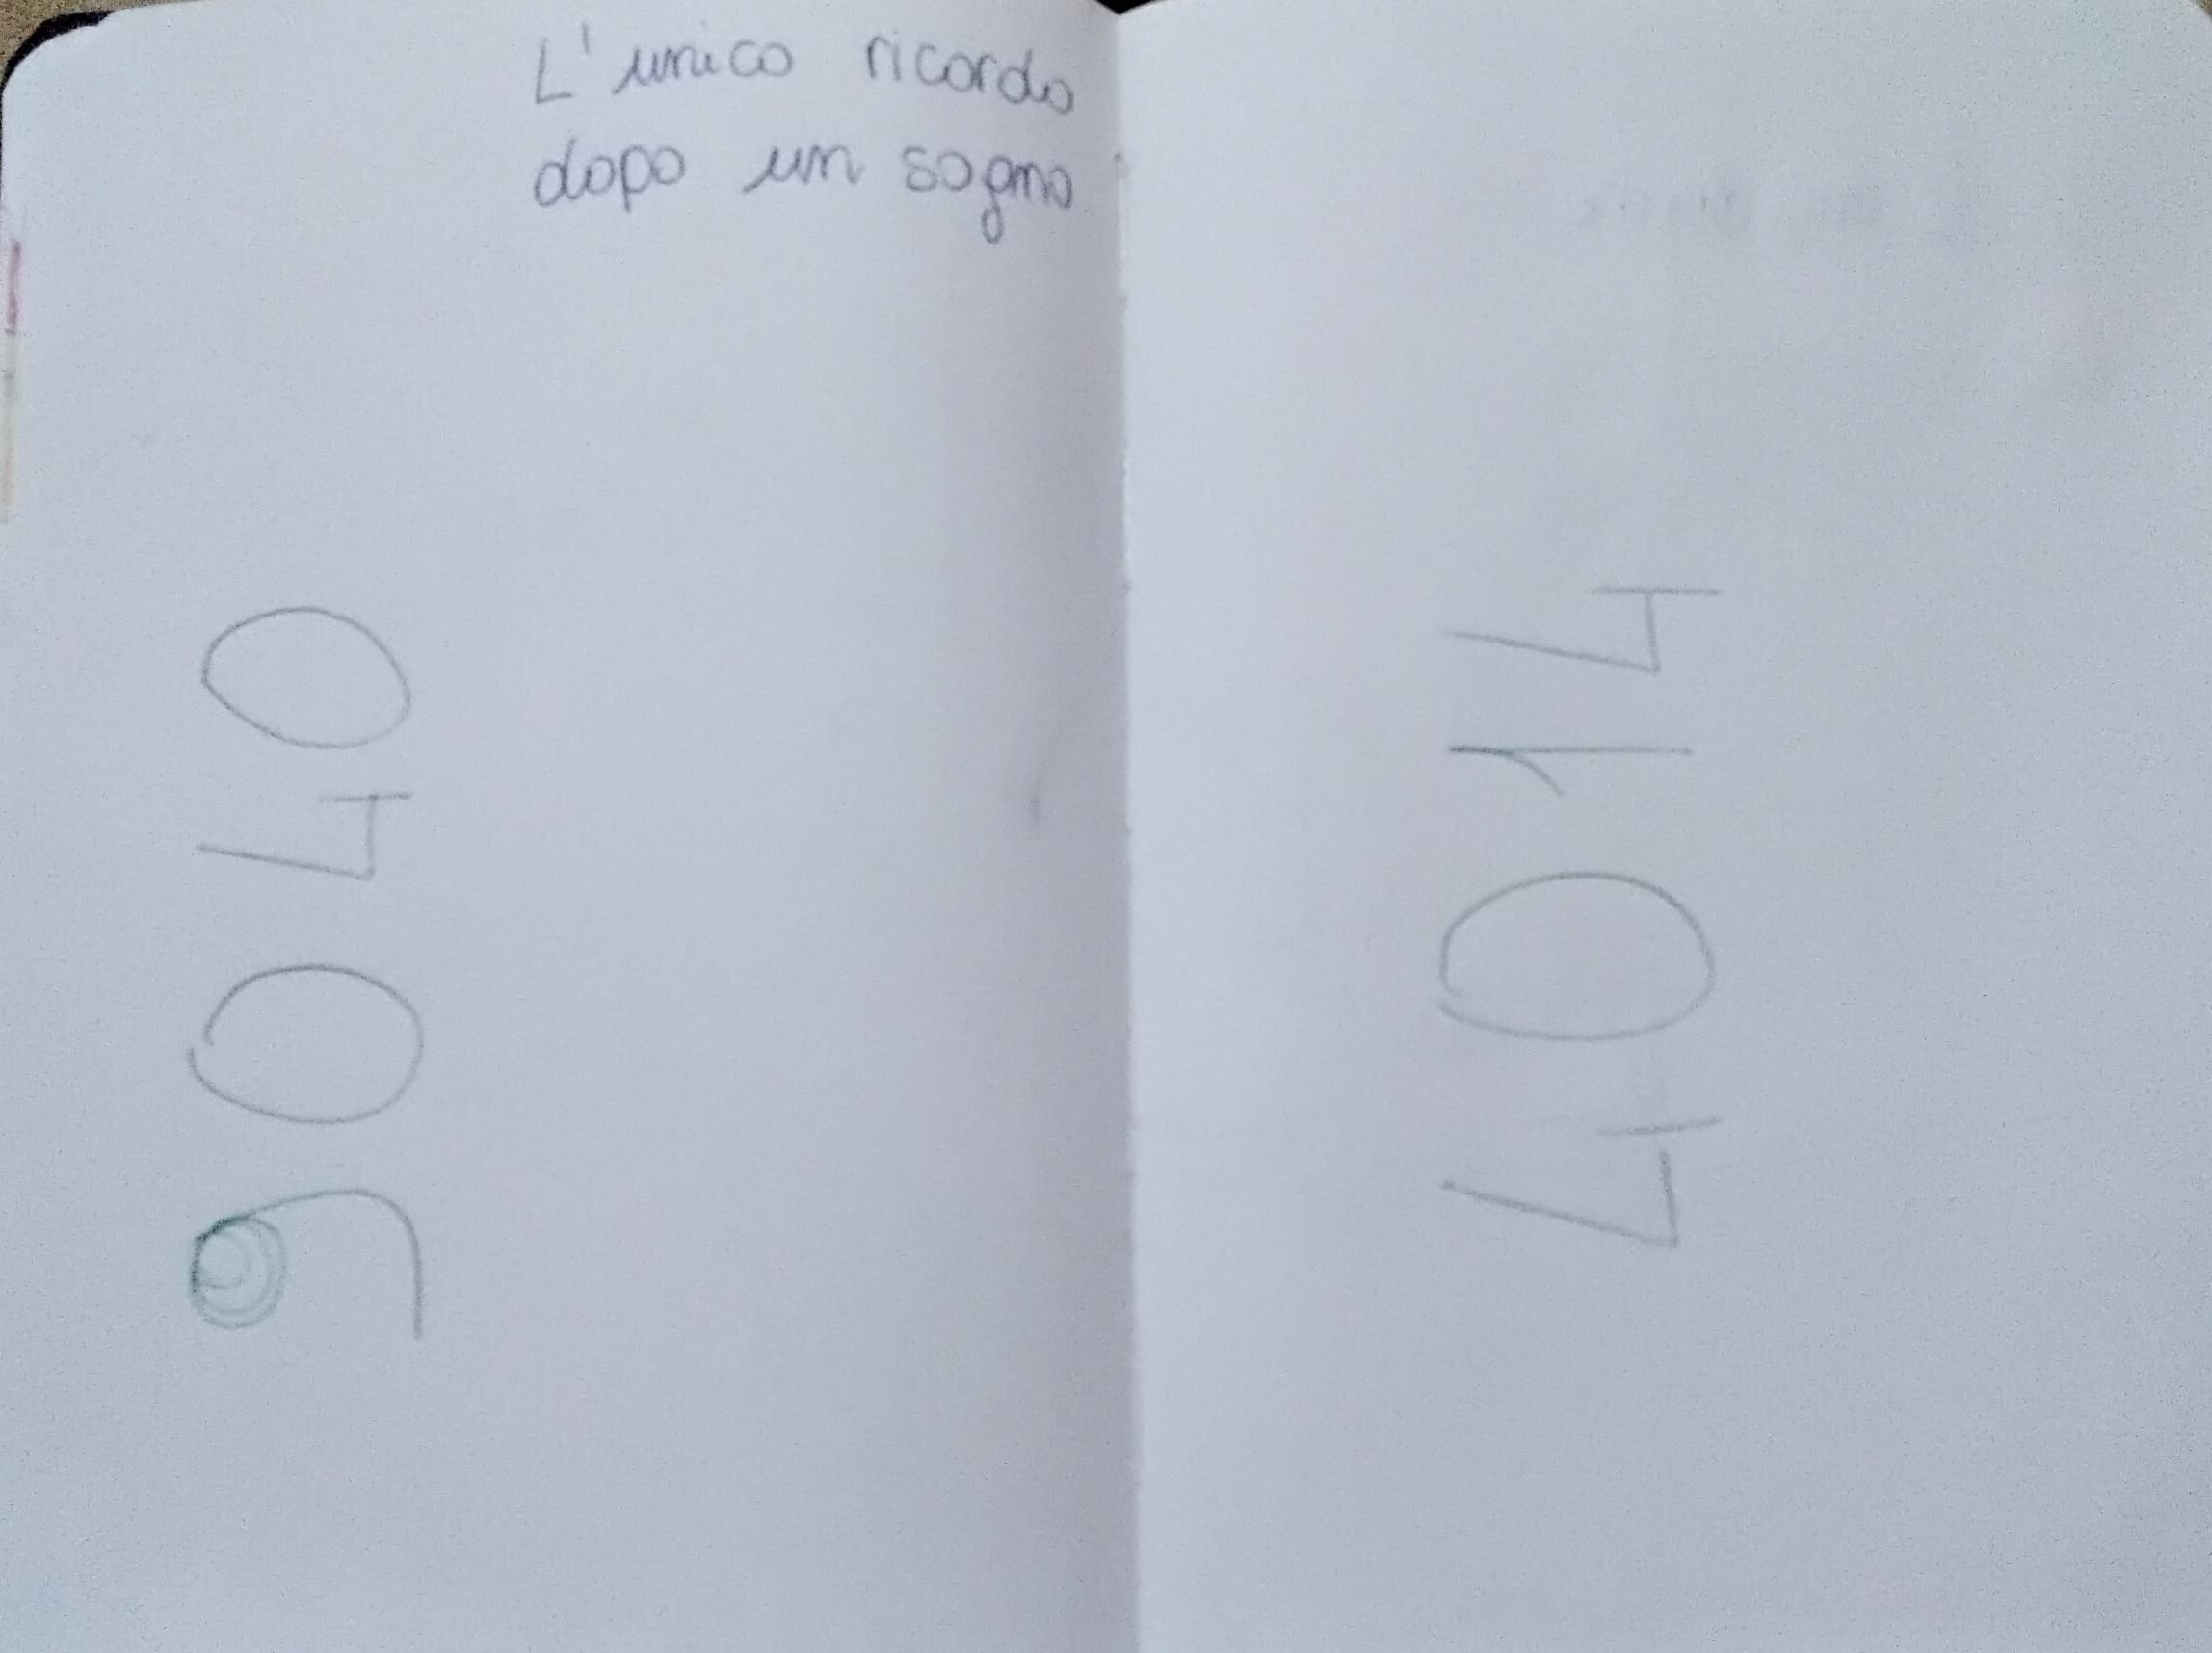 L'unico ricordo
dopo un sogno
9040
4014